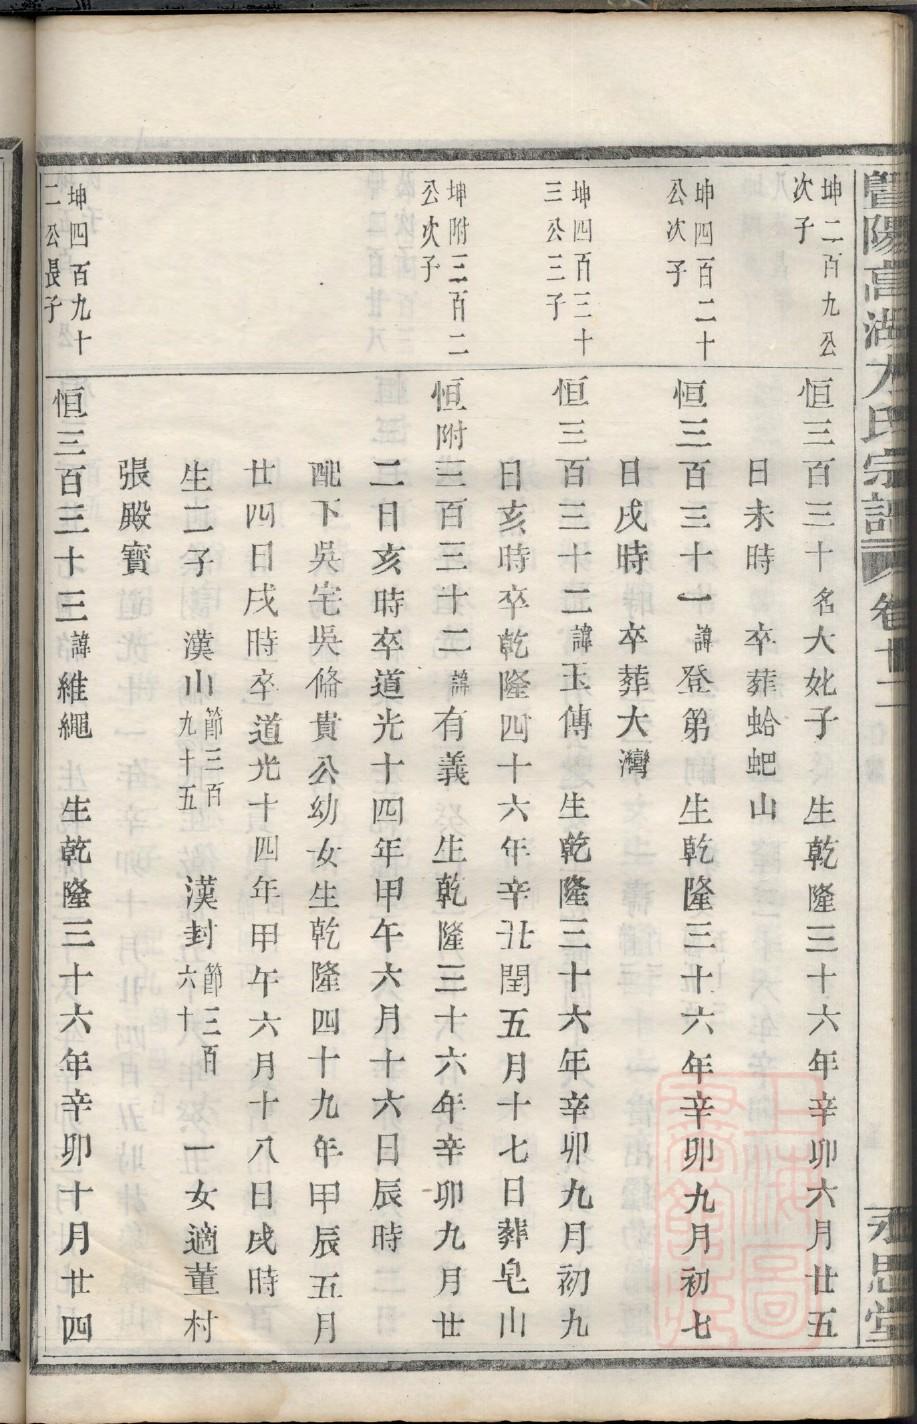 暨陽高湖方氏宗譜 卷廿二 永思堂
坤二百九公
次子
恒三百三十名大妣子 生乾隆三十六年辛卯六月廿五
日未時 卒葬蛤蚆山
坤四百二十
公次子
恒三百三十一諱登第 生乾隆三十六年辛卯九月初七
日戌時 卒葬大灣
坤四百三十
三公三子
恒三百三十二諱玉傳 生乾隆三十六年辛卯九月初九
日亥時卒乾隆四十六年辛丑閏五月十七日葬皂山
坤附三百二
公次子
恒附三百三十二諱有義 生乾隆三十六年辛卯九月廿
二日亥時卒道光十四年甲午六月十六日辰時
配下吳宅吳脩貴公幼女生乾隆四十九年甲辰五月
廿四日戌時卒道光十四年甲午六月十八日戌時
生二子 漢山節三百九十五 漢封節三百六十 一女適董村
張殿寶
坤四百九十
二公長子
恒三百三十三諱維繩 生乾隆三十六年辛卯十月廿四